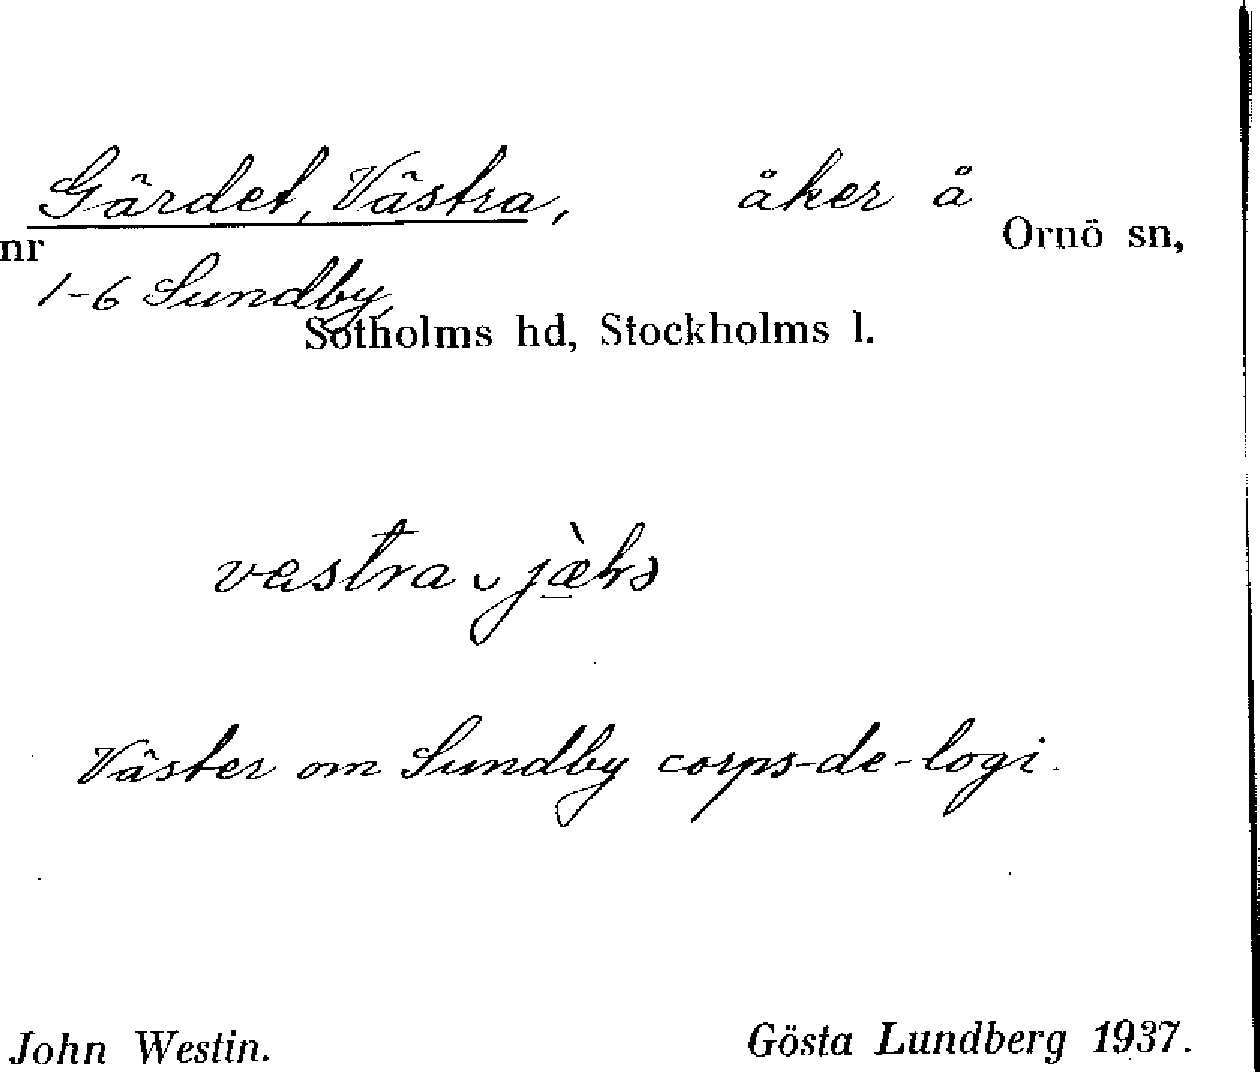 Gärdet, Västra, åker å Ornö sn,
nr
1-6 Sundby,
Sotholms hd, Stockholms l.
Väster om Sundby corps-de-logi.
John Westin. Gösta Lundberg 1937.